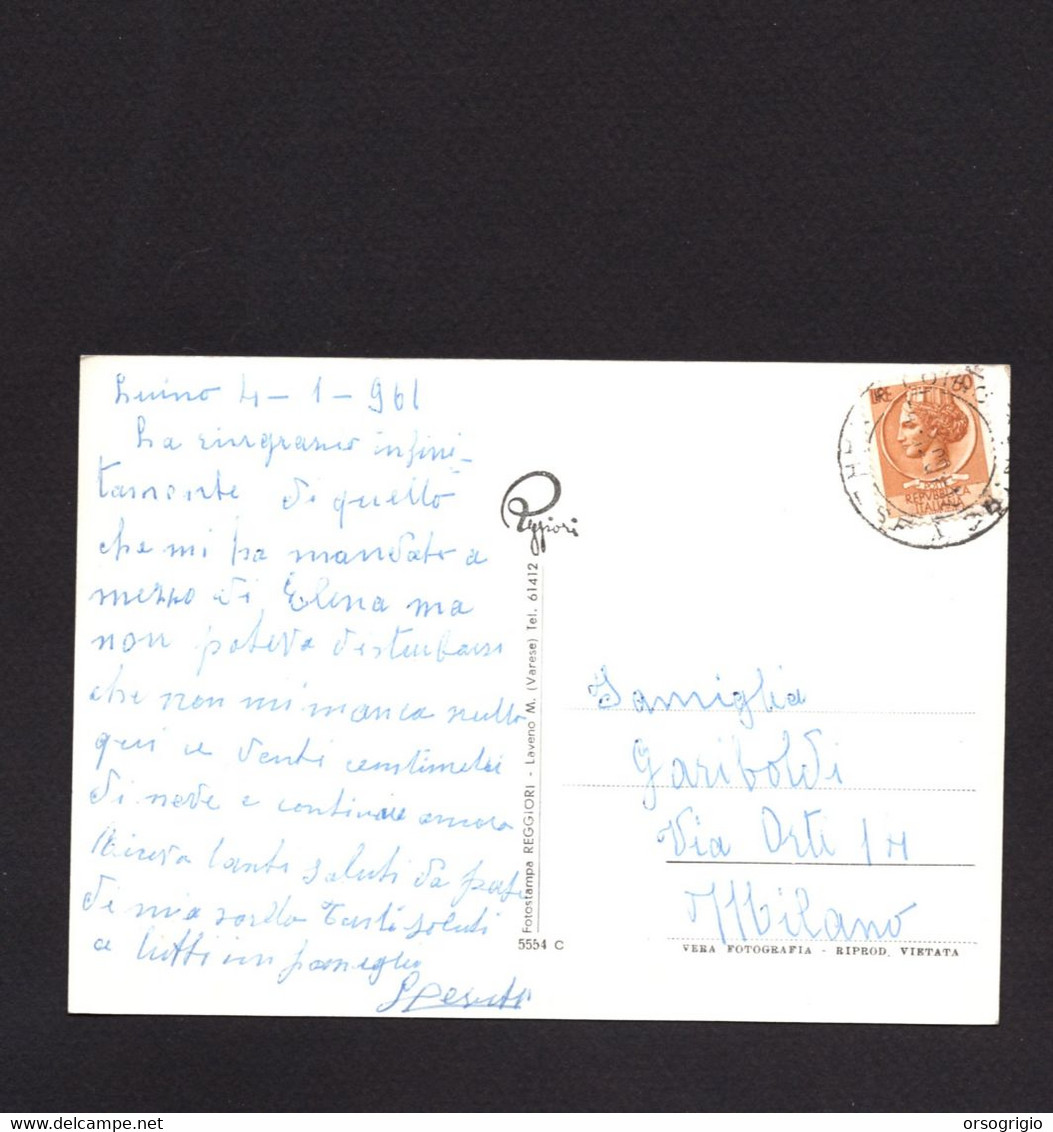 Luino 4-1-961
La ringrazio infini-
tamente di quello
che mi ha mandato a
mezzo di Elena ma
non poteva disturbarsi
che non mi manca nulla
qui ce venti centimetri
di neve e continua ancora
Riceva tanti saluti da parte
di mia sorella Tanti saluti
a tutti in famiglia
Reggiori
Fotostampa REGGIORI - Laveno M. (Varese) Tel. 61412
5554 C
LIRE
POSTE
REPVBBLICA
ITALIANA
Famiglia
Gariboldi
Via Orti 14
Milano
VERA FOTOGRAFIA - RIPROD. VIETATA
www.delcampe.net
orsogrigio